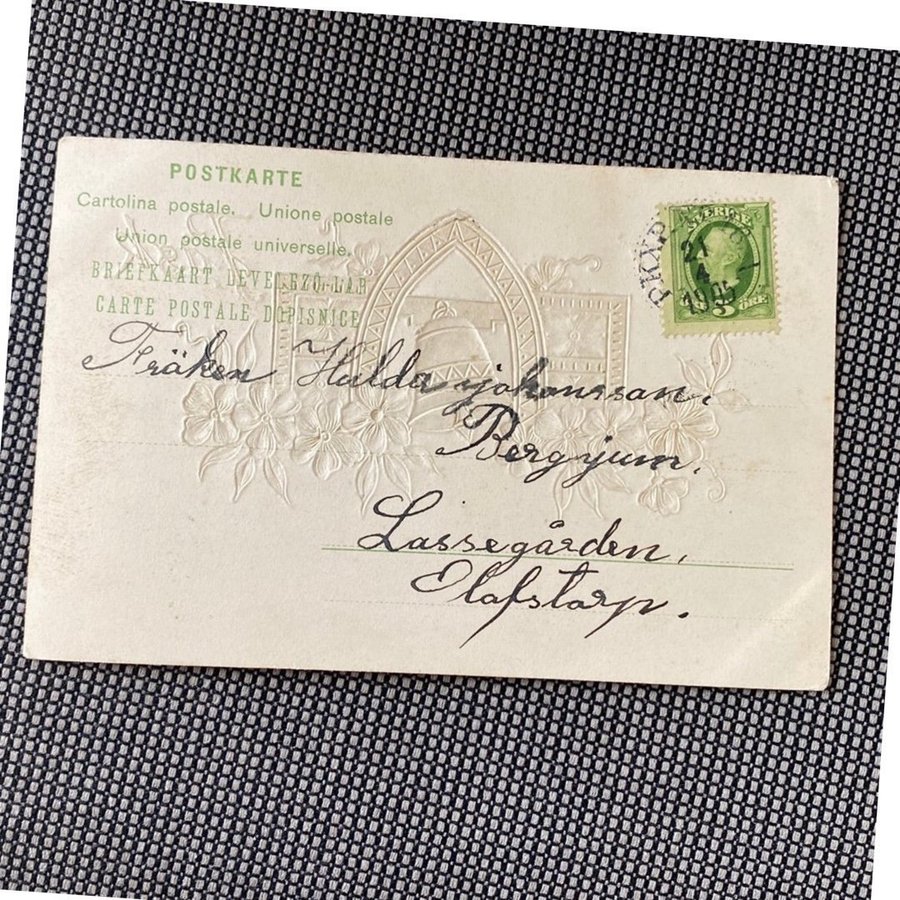 POSTKARTE
Cartolina postale. Unione postale
Union postale universelle.
BRIEFKAART LEVELEZÖ-LAP
CARTE POSTALE DOPISNICE
SVERIGE
5 ÖRE
PKXP
21
4
1905
Fröken Hulda Johanssan.
Bergjum.
Lassegården,
Olafstorp.